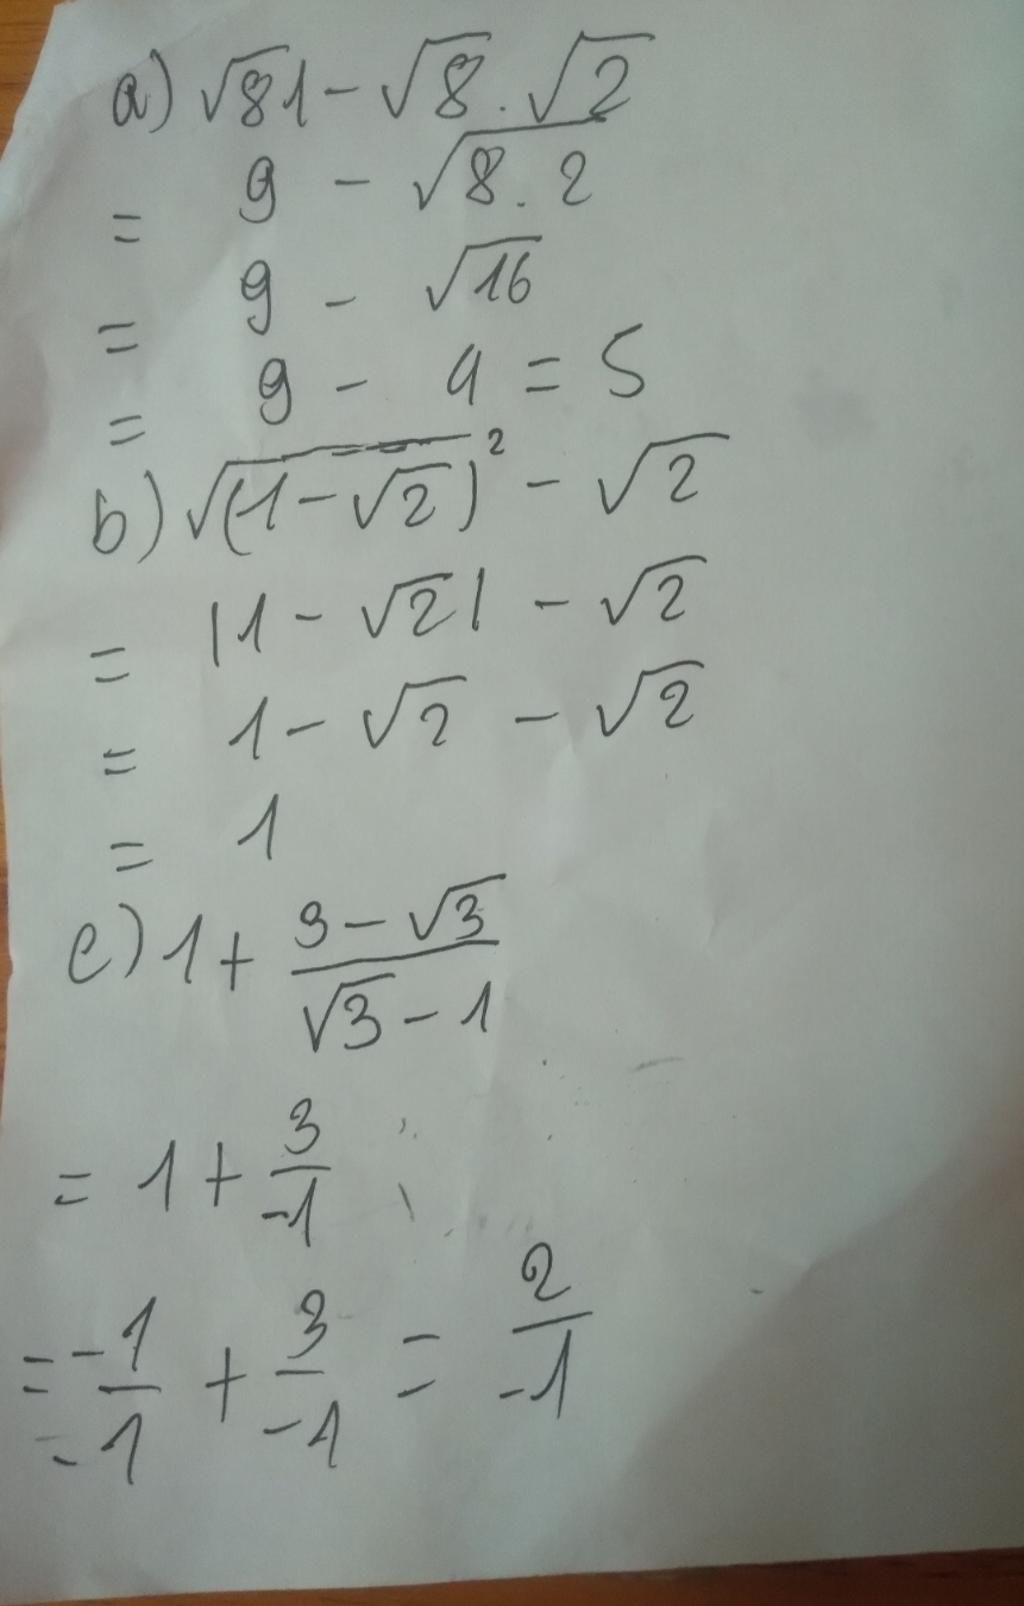 a) √81 - √8 . √2
= 9 - √(8.2)
= 9 - √16
= 9 - 4 = 5
b) √(1-√2)² - √2
= |1 - √2| - √2
= 1 - √2 - √2
= 1
c) 1 + (3 - √3)/(√3 - 1)
= 1 + 3/-1
= -1/-1 + 3/-1 = 2/-1